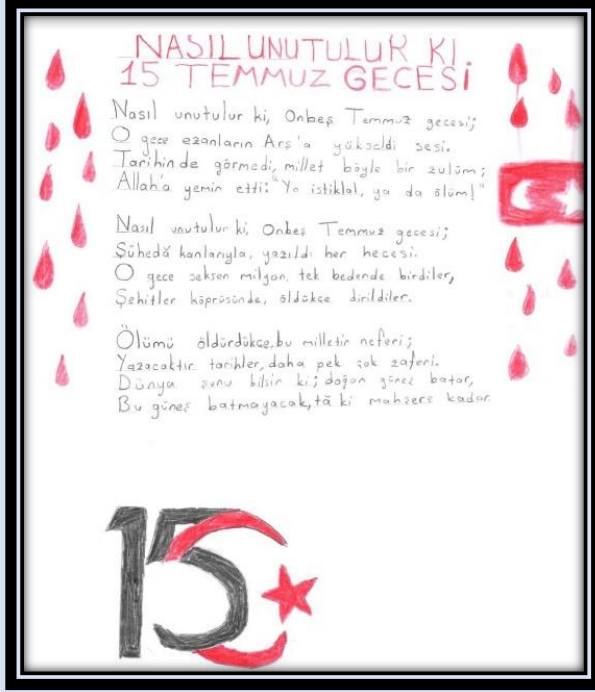 NASIL UNUTULUR Kİ
15 TEMMUZ GECESİ
Nasıl unutulur ki, Onbeş Temmuz gecesi;
O gece ezanların Arş'a yükseldi sesi.
Tarihinde görmedi, millet böyle bir zulüm;
Allah'a yemin etti: "Ya istiklal, ya da ölüm!"
Nasıl unutulur ki, Onbeş Temmuz gecesi;
Şühedâ kanlarıyla, yazıldı her hecesi.
O gece seksen milyon, tek bedende birdiler,
Şehitler köprüsünde, öldükçe dirildiler.
Ölümü öldürdükçe, bu milletin neferi;
Yazacaktır tarihler, daha pek çok zaferi.
Dünya şunu bilsin ki; doğan güneş batar,
Bu güneş batmayacak, tâ ki mahşere kadar.
15